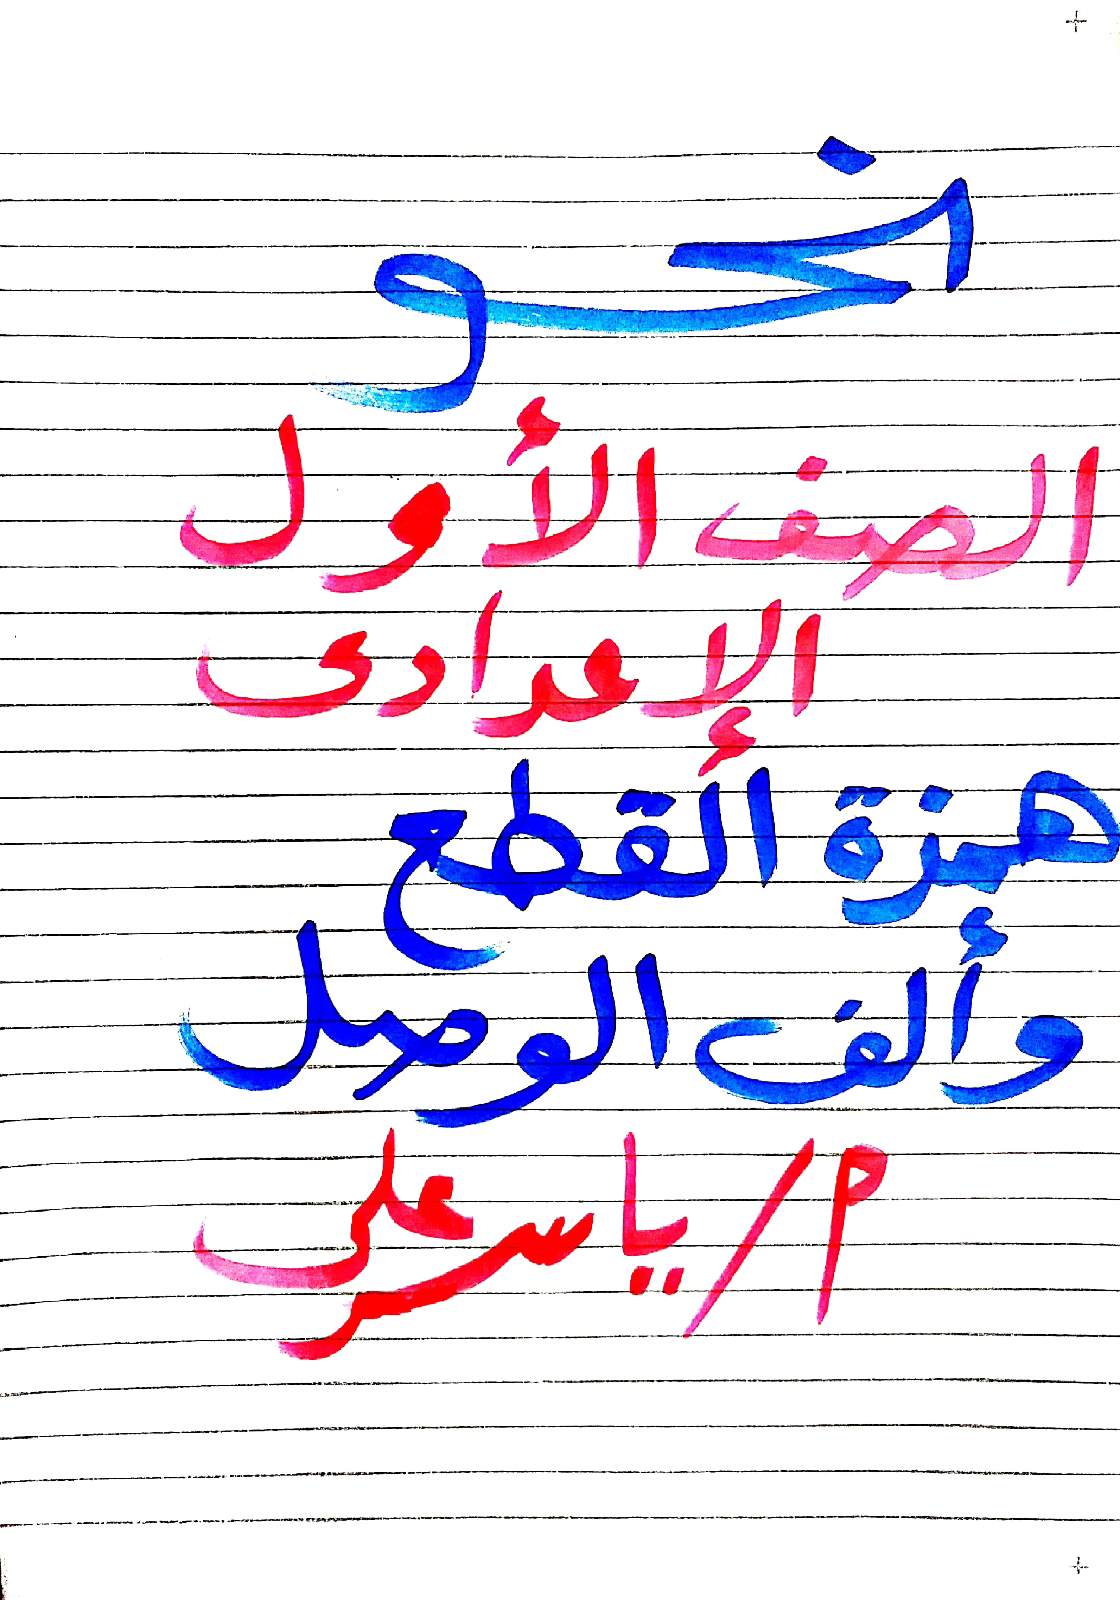 نحو
الصف الأول
الإعدادى
همزة القطع
وألف الوصل
م/ ياسر على